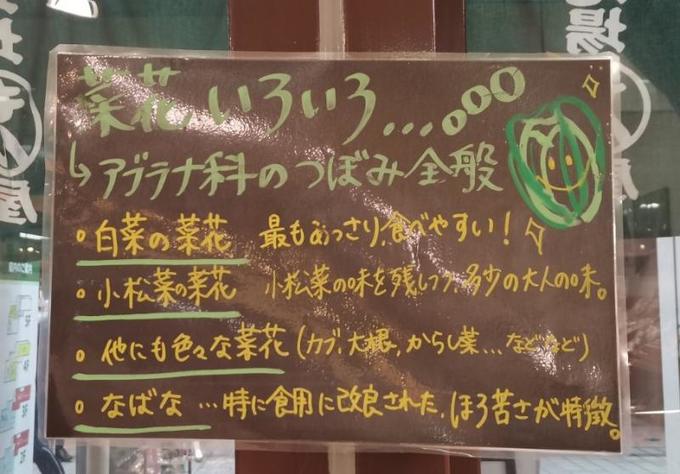 菜花、いろいろ...。o O
↳アブラナ科のつぼみ全般
・白菜の菜花 最もあっさり、食べやすい!
・小松菜の菜花 小松菜の味を残しつつ、多少の大人の味。
・他にも色々な菜花(カブ、大根、からし菜...などなど)
・なばな …特に食用に改良された、ほろ苦さが特徴。